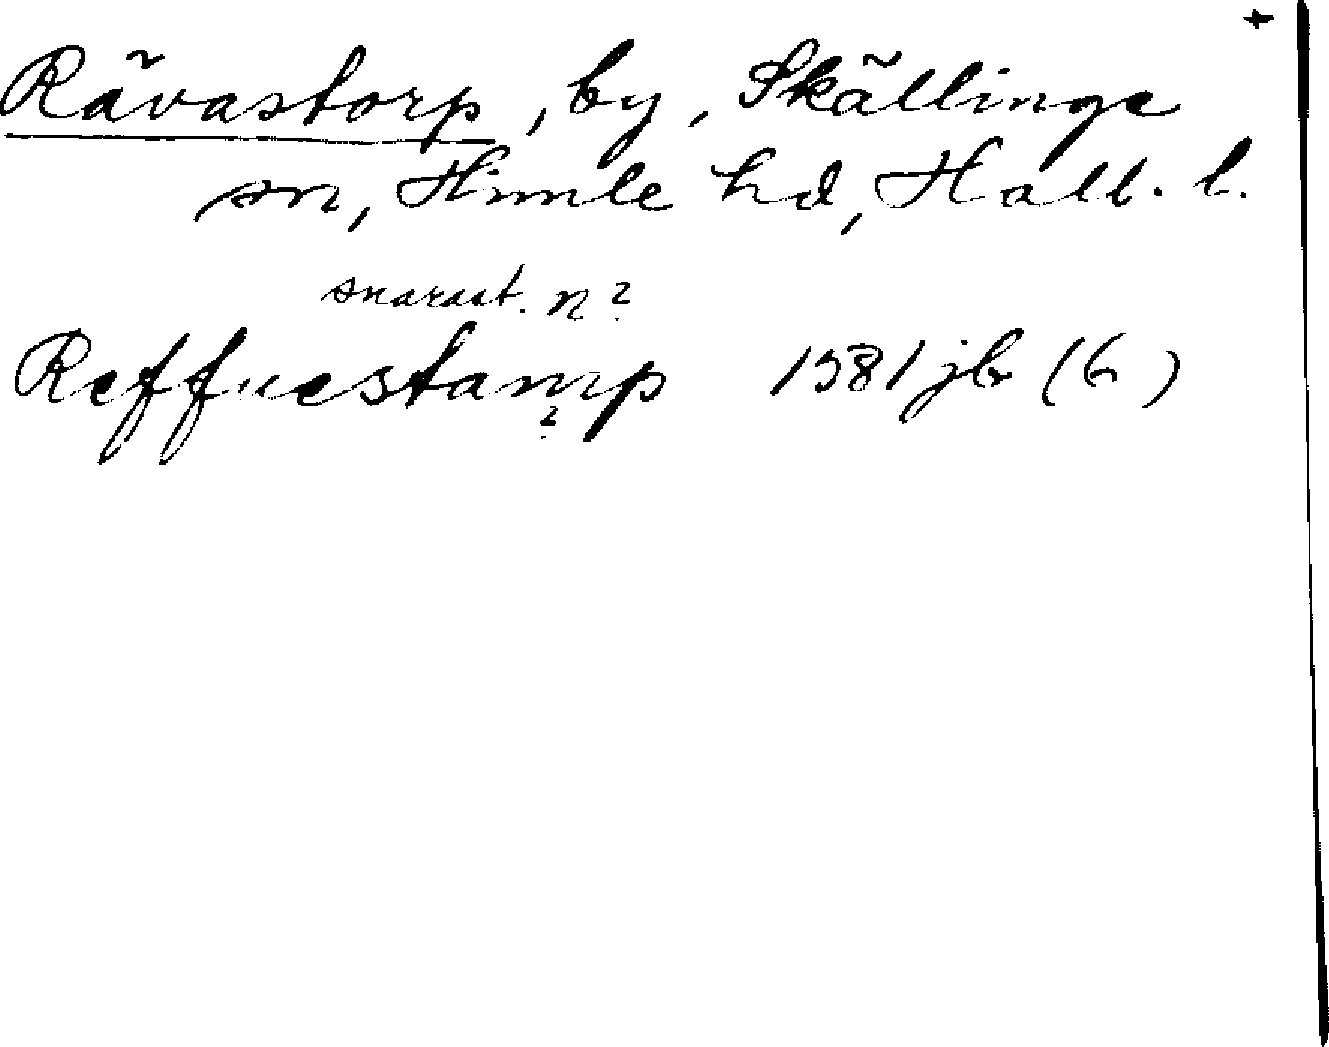 +
Rävastorp, by, Skällinge
sn, Himle hd, Hall. l.
snarast. n?
Reffuestamp 1581 jb (6)
?